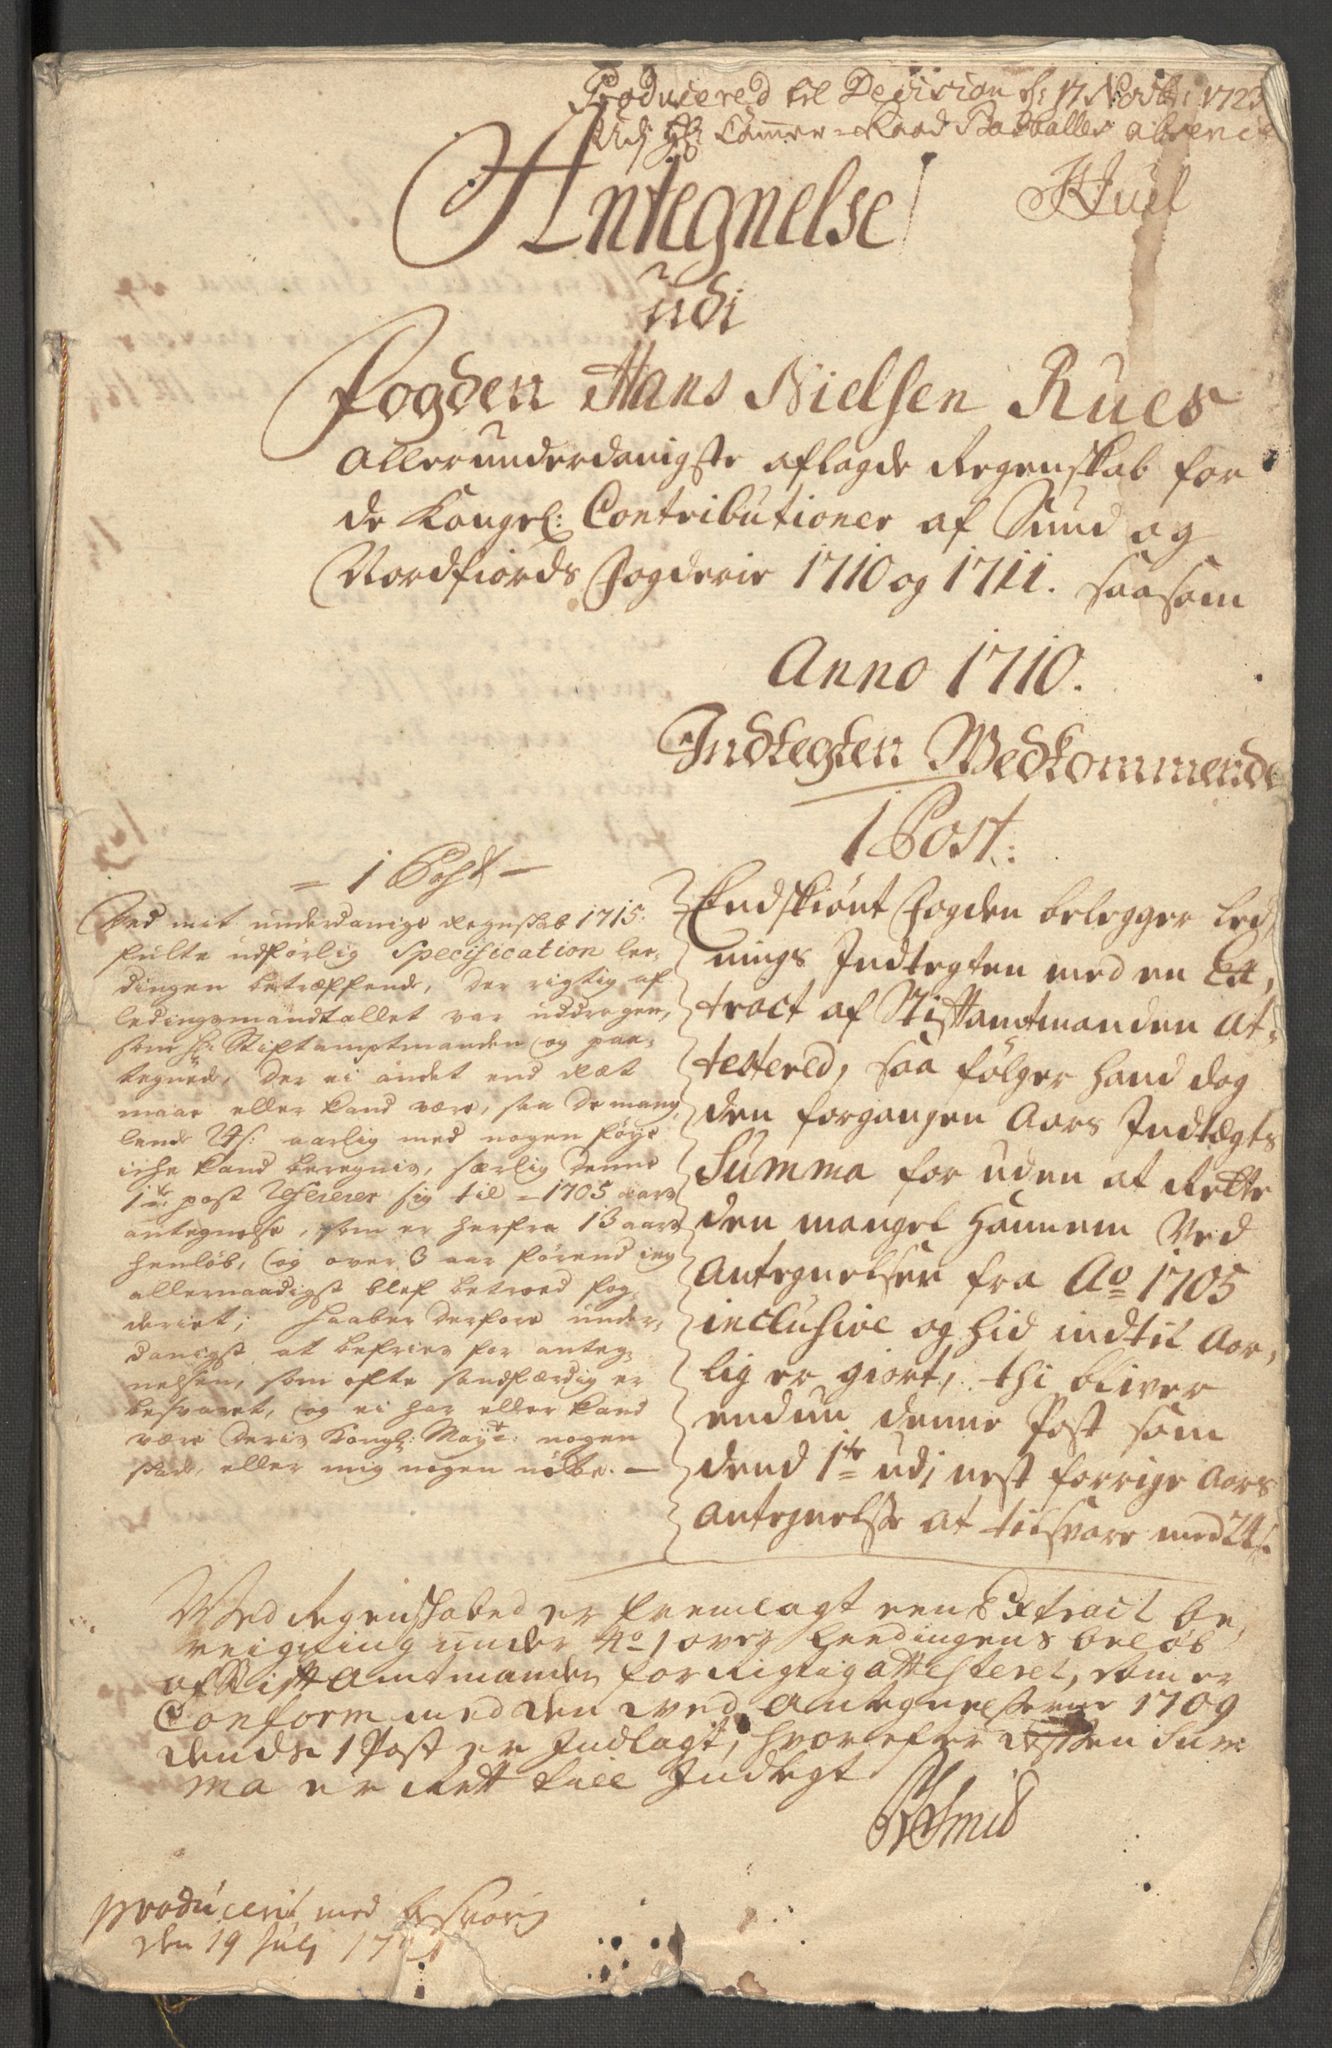 Producered til Decision d: 17 Novbr: 1723
udj Hr Cammer-Raad absence
JJuel
Antegnelse
udi
Fogden Hans Nielsen Rues
allerunderdanigste aflagde Regenskab for
de Kongel: Contributioner af Sund og
Nordfiords Fogderie 1710 og 1711. saasom
Anno 1710.
Indtegten Vedkommende
1 Post:
Endskiönt Fogden belegger Led,
nings Indtegten med en Ex,
tract af Stiftamtmanden at,
testered, saa fölger hand dog
den forgangen Aars Indtægts
Summa for uden at Rette
den mangel hannem ved
Antegnelser fra Ao 1705
inclusive og hid indtil Aar,
lig er giort, thi bliver
endnu denne Post som
dend 1te udj nest forrige Aars
Antegnelse at tilsvare med 24 s.
= 1 Post –
Ved mit underdanige Regnskab 1715
fulte udførlig Specification lee,
dingen betræffende, der rigtig af
ledingsmandtallet var uddragen,
som hr: Stiftamptmanden og paa,
tegnede, der ei andet end Ræt
maae eller kand være, saa de mang,
lende 24 s: aarlig med nogen føye
iche kand beregnis, særlig denne
1te post refererer sig til – 1705 aars
antegnelse, som er herfra 13 aar
henløb, og over 3 aar førend ieg
allernaadigst blef betroed fog,
deriet; haaber derfore under,
danigst at befries for anteg,
nelsen, som ofte sandfærdig er
besvaret, og ei har eller kand
være Deris Kongl: Mayts: nogen
skade, eller mig nogen nøtte. —
Ved Regenskabed er fremlagt een Extract be,
reigning under No 1 over Leedingens beløb
af Stift Amtmanden for Rigtig attesteret, som er
Conform med den ved Antegnelserne 1709
dends 1 Post er Indlagt, hvorefter Summa
er Rett till Indtegt
Smid
produceret med besvaring
den 19 Julj 17